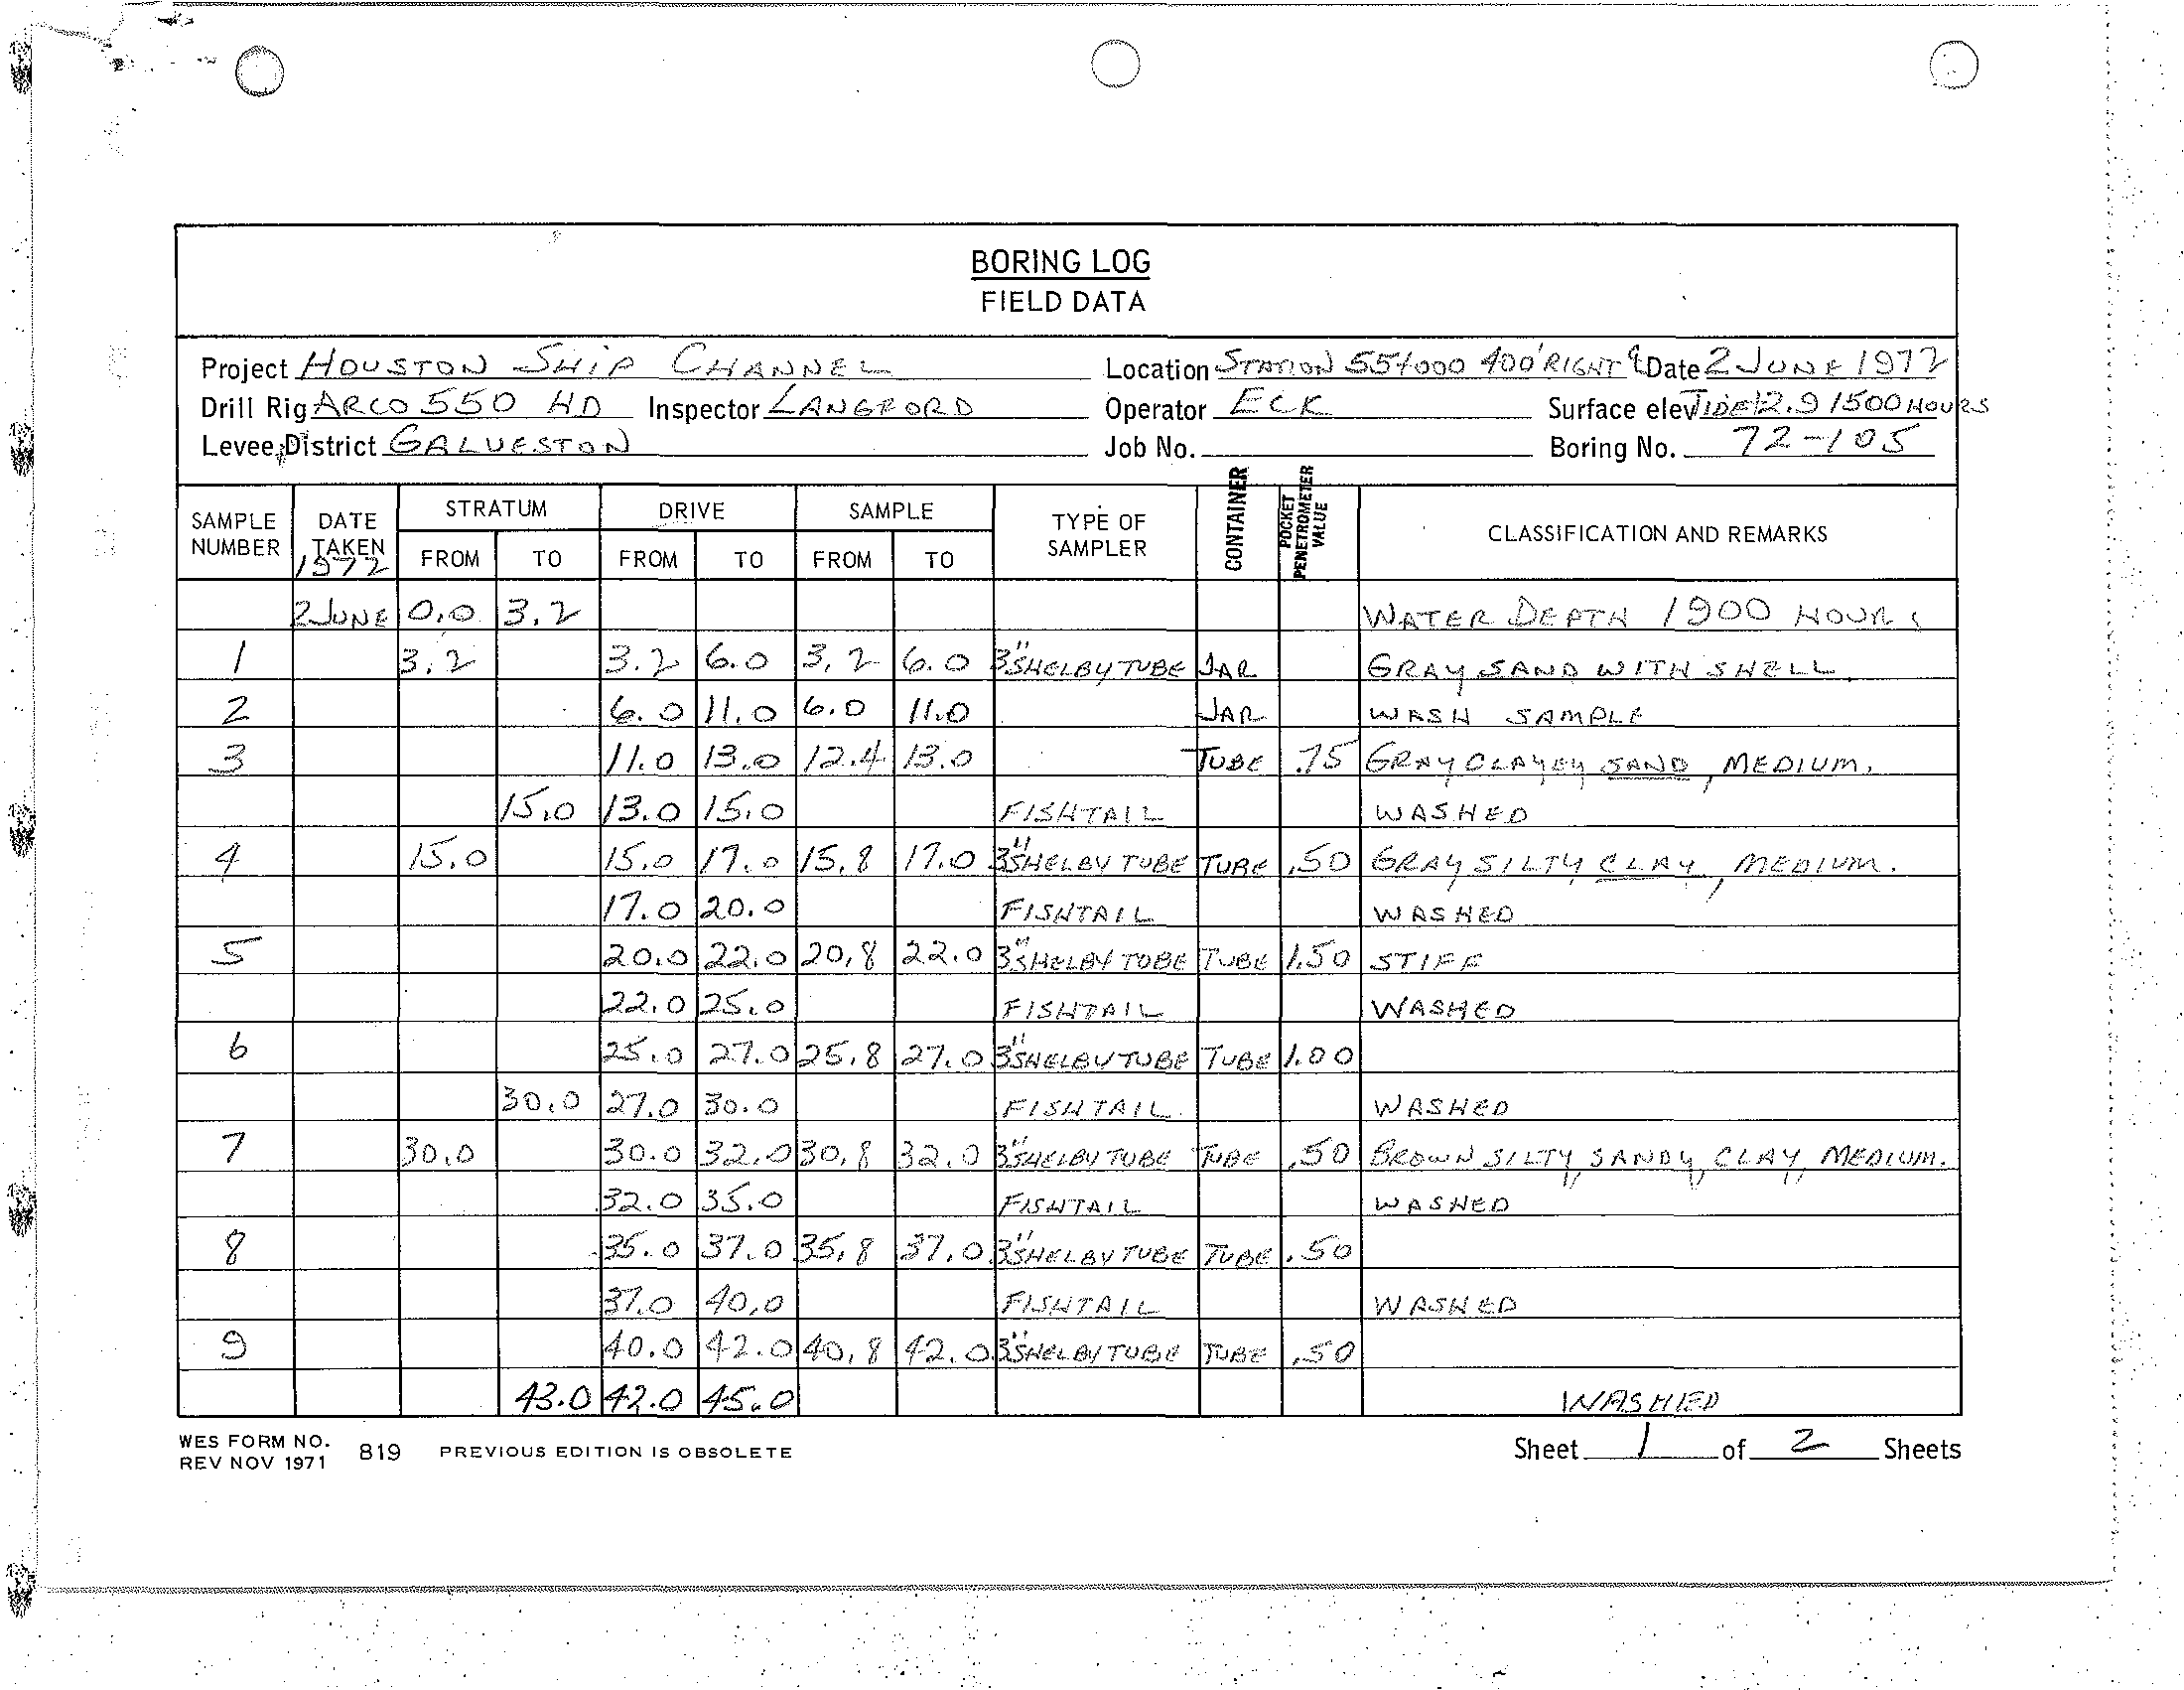 BORING LOG
FIELD DATA
Project HOUSTON SHIP CHANNEL Location STATION 55+000 400' RIGHT ℄ Date 2 JUNE 1972
Drill Rig ARCO 550 HD Inspector LANGFORD Operator ECK Surface elev TIDE 12.9 1500 HOURS
Levee District GALVESTON Job No. Boring No. 72-105
SAMPLE NUMBER DATE TAKEN 1972 STRATUM FROM TO DRIVE FROM TO SAMPLE FROM TO TYPE OF SAMPLER CONTAINER POCKET PENETROMETER VALUE CLASSIFICATION AND REMARKS
2 JUNE 0.0 3.2 WATER DEPTH 1900 HOURS
1 3.2 3.2 6.0 3.2 6.0 3" SHELBY TUBE JAR GRAY SAND WITH SHELL.
2 6.0 11.0 6.0 11.0 JAR WASH SAMPLE
3 11.0 13.0 12.4 13.0 TUBE .75 GRAY CLAYEY SAND, MEDIUM.
15.0 13.0 15.0 FISHTAIL WASHED
4 15.0 15.0 17.0 15.8 17.0 3" SHELBY TUBE TUBE .50 GRAY SILTY CLAY, MEDIUM.
17.0 20.0 FISHTAIL WASHED
5 20.0 22.0 20.8 22.0 3" SHELBY TOBE TUBE 1.50 STIFF
22.0 25.0 FISHTAIL WASHED
6 25.0 27.0 25.8 27.0 3" SHELBY TUBE TUBE 1.00
30.0 27.0 30.0 FISHTAIL WASHED
7 30.0 30.0 32.0 30.8 32.0 3" SHELBY TUBE TUBE .50 BROWN SILTY, SANDY, CLAY, MEDIUM.
32.0 35.0 FISHTAIL WASHED
8 35.0 37.0 35.8 37.0 3" SHELBY TUBE TUBE .50
37.0 40.0 FISHTAIL WASHED
9 40.0 42.0 40.8 42.0 3" SHELBY TUBE TUBE .50
43.0 42.0 45.0 WASHED
WES FORM NO. 819 PREVIOUS EDITION IS OBSOLETE Sheet 1 of 2 Sheets
REV NOV 1971